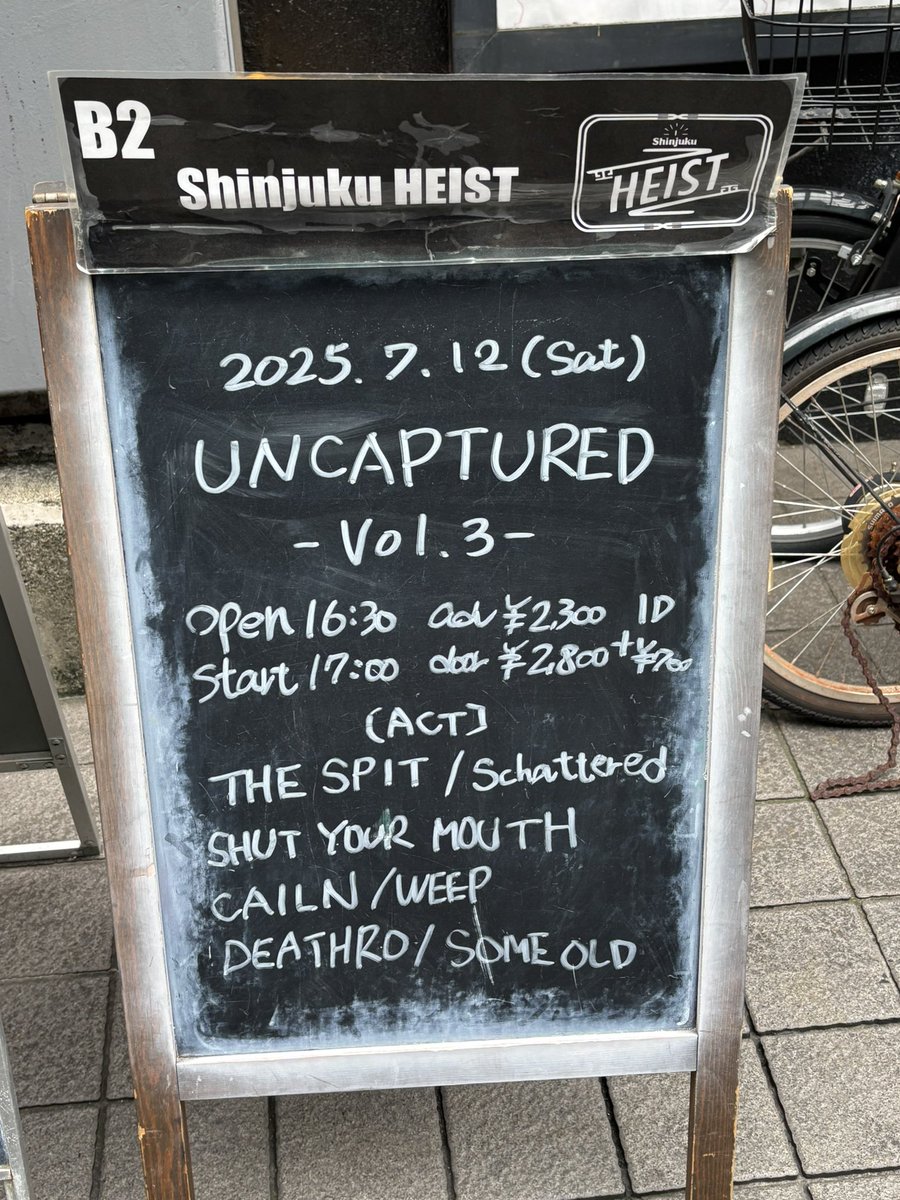 B2
Shinjuku HEIST
Shinjuku
HEIST
2025.7.12(Sat)
UNCAPTURED
-Vol.3-
open 16:30 adv ¥2,300 1D
Start 17:00 door ¥2,800 +¥700
[ACT]
THE SPIT / Schattered
SHUT YOUR MOUTH
CAILN / WEEP
DEATHRO / SOME OLD